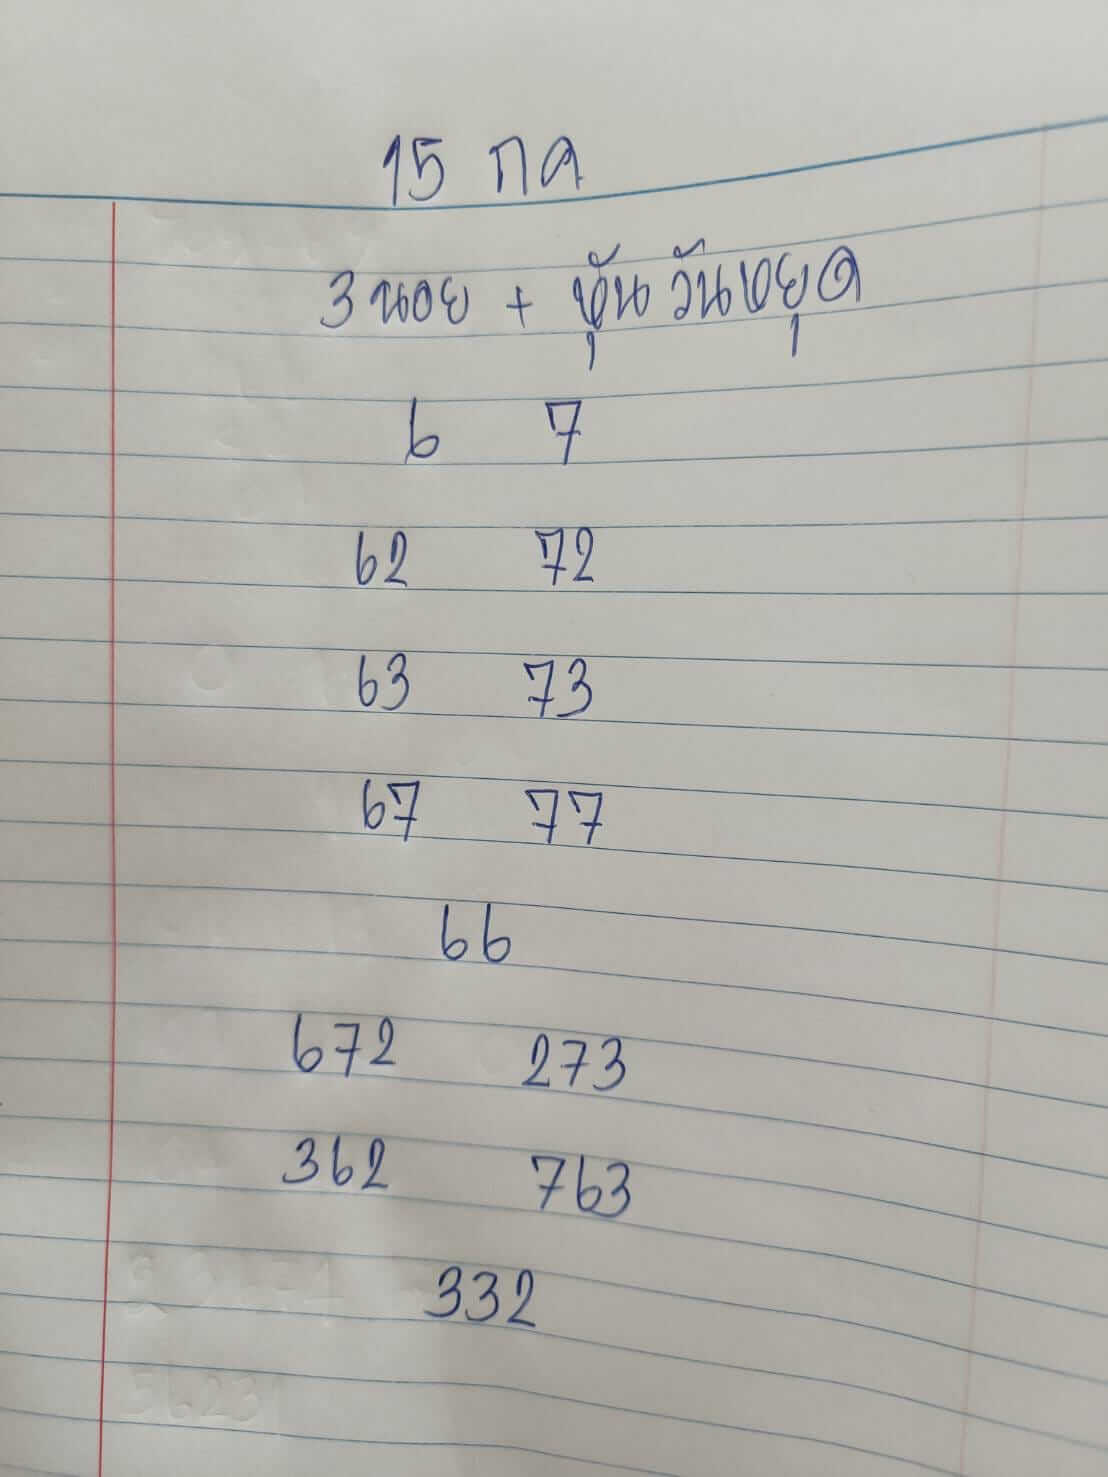 15 กค
3 นอย + หุ้น วันหยุด
6 7
62 72
63 73
67 77
66
672 273
362 763
332